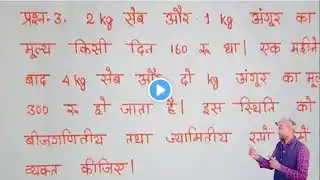 प्रश्न-3. 2 kg सेब और 1 kg अंगूर का
मूल्य किसी दिन 160 रू था। एक महीने
बाद 4 kg सेब और दो kg अंगूर का मू
300 रू हो जाता है। इस स्थिति को
बीजगणितीय तथा ज्यामितीय रूपों
व्यक्त कीजिए।